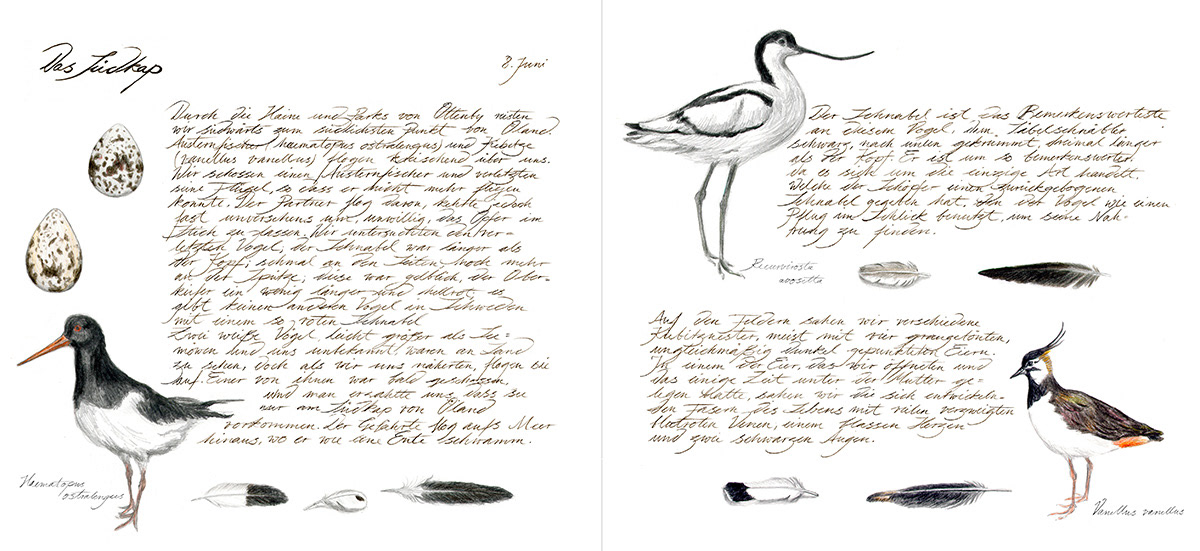 Das Südkap
8. Juni
Durch die Haine und Parks von Ottenby reisten
wir südwärts zum südlichsten Punkt von Öland.
Austernfischer (haematopus ostralengus) und Kiebitze
(vanellus vanellus) flogen kreischend über uns.
Wir schossen einen Austernfischer und verletzten
seine Flügel, so dass er nicht mehr fliegen
konnte. Der Partner flog davon, kehrte jedoch
fast unversehens um, unwillig, das Opfer im
Stich zu lassen. Wir untersuchten den ver-
letzten Vogel; der Schnabel war länger als
der Kopf, schmal an den Seiten, hoch mehr
an der Spitze; diese war gelblich, der Ober-
kiefer ein wenig länger und hellrot; es
gibt keinen anderen Vogel in Schweden
mit einem so roten Schnabel
Zwei weiße Vögel, leicht größer als See=
möwen und uns unbekannt, waren an Land
zu sehen, doch als wir uns näherten, flogen sie
auf. Einer von ihnen war bald geschossen,
und man erzählte uns, dass sie
nur am Südkap von Öland
vorkommen. Der Gefährte flog aufs Meer
hinaus, wo er wie eine Ente schwamm.
Haematopus
ostralengus
Der Schnabel ist das Bemerkenswerteste
an diesem Vogel, dem Säbelschnäbler:
schwarz, nach unten gekrümmt, dreimal länger
als der Kopf. Er ist um so bemerkenswerter,
da es sich um die einzige Art handelt,
welche der Schöpfer einen zurückgebogenen
Schnabel gegeben hat, den der Vogel wie einen
Pflug im Schlick benutzt, um seine Nah-
rung zu finden.
Recurvirosta
avosetta
Auf den Feldern sahen wir verschiedene
Kiebitznester, meist mit vier graugetönten,
ungleichmäßig dunkel gepunkteten Eiern.
In einem der Eier, das wir öffneten und
das einige Zeit unter der Mutter ge=
legen hatte, sahen wir die sich entwickeln-
den Fasern des Lebens mit vielen verzweigten
blutroten Venen, einem blassen Herzen
und zwei schwarzen Augen.
Vanellus vanellus